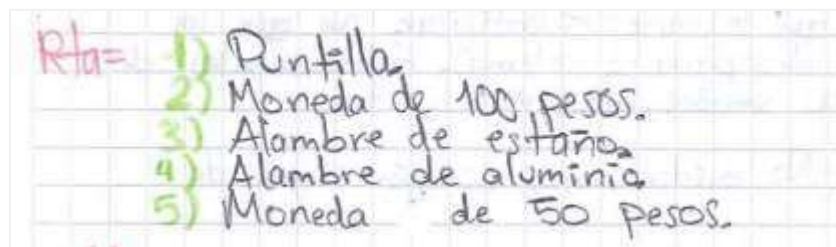 Rta= 1) Puntilla.
2) Moneda de 100 pesos.
3) Alambre de estaño.
4) Alambre de aluminio.
5) Moneda de 50 pesos.